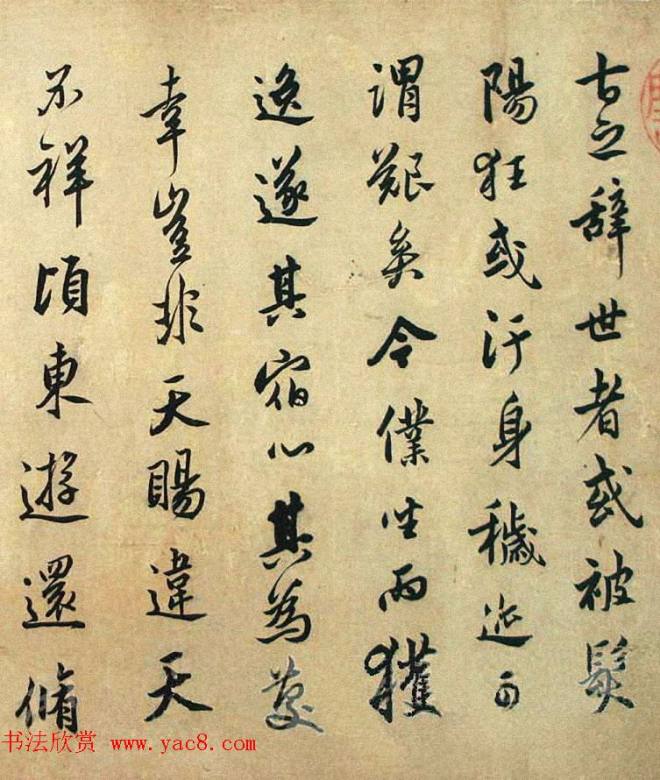 古之辭世者或被髮
陽狂或汙身穢迹可
謂艱矣今僕坐而獲
逸遂其宿心其為慶
幸豈非天賜違天
不祥頃東遊還脩
书法欣赏 www.yac8.com